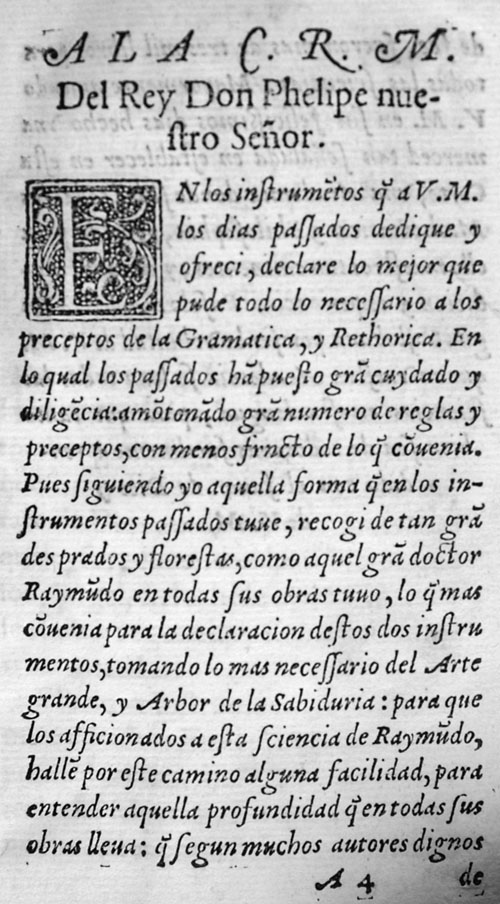 A L A C. R. M.
Del Rey Don Phelipe nue-
ſtro Señor.
ENlos inſtrumẽtos q̃ a V.M.
los dias paſſados dedique y
ofreci, declare lo mejor que
pude todo lo neceſſario a los
preceptos de la Gramatica, y Rethorica. En
lo qual los paſſados hã pueſto grã cuydado y
diligẽcia: amõtonãdo grã numero de reglas y
preceptos, con menos frncto de lo q̃ cõuenia.
Pues ſiguiendo yo aquella forma q̃ en los in-
ſtrumentos paſſados tuue, recogi de tan grã
des prados y floreſtas, como aquel grã doctor
Raymũdo en todas ſus obras tuuo, lo q̃ mas
cõuenia para la declaracion deſtos dos inſtru
mentos, tomando lo mas neceſſario del Arte
grande, y Arbor de la Sabiduria: para que
los afficionados a eſta ſciencia de Raymũdo,
hallẽ por eſte camino alguna facilidad, para
entender aquella profundidad q̃ en todas ſus
obras lleua: q̃ ſegun muchos autores dignos
A 4 de